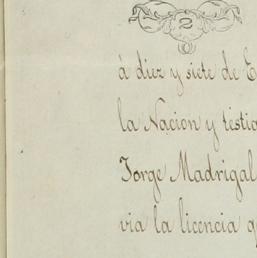 2
á diez y siete de E
la Nacion y testi
Jorge Madrigal
via la licencia q